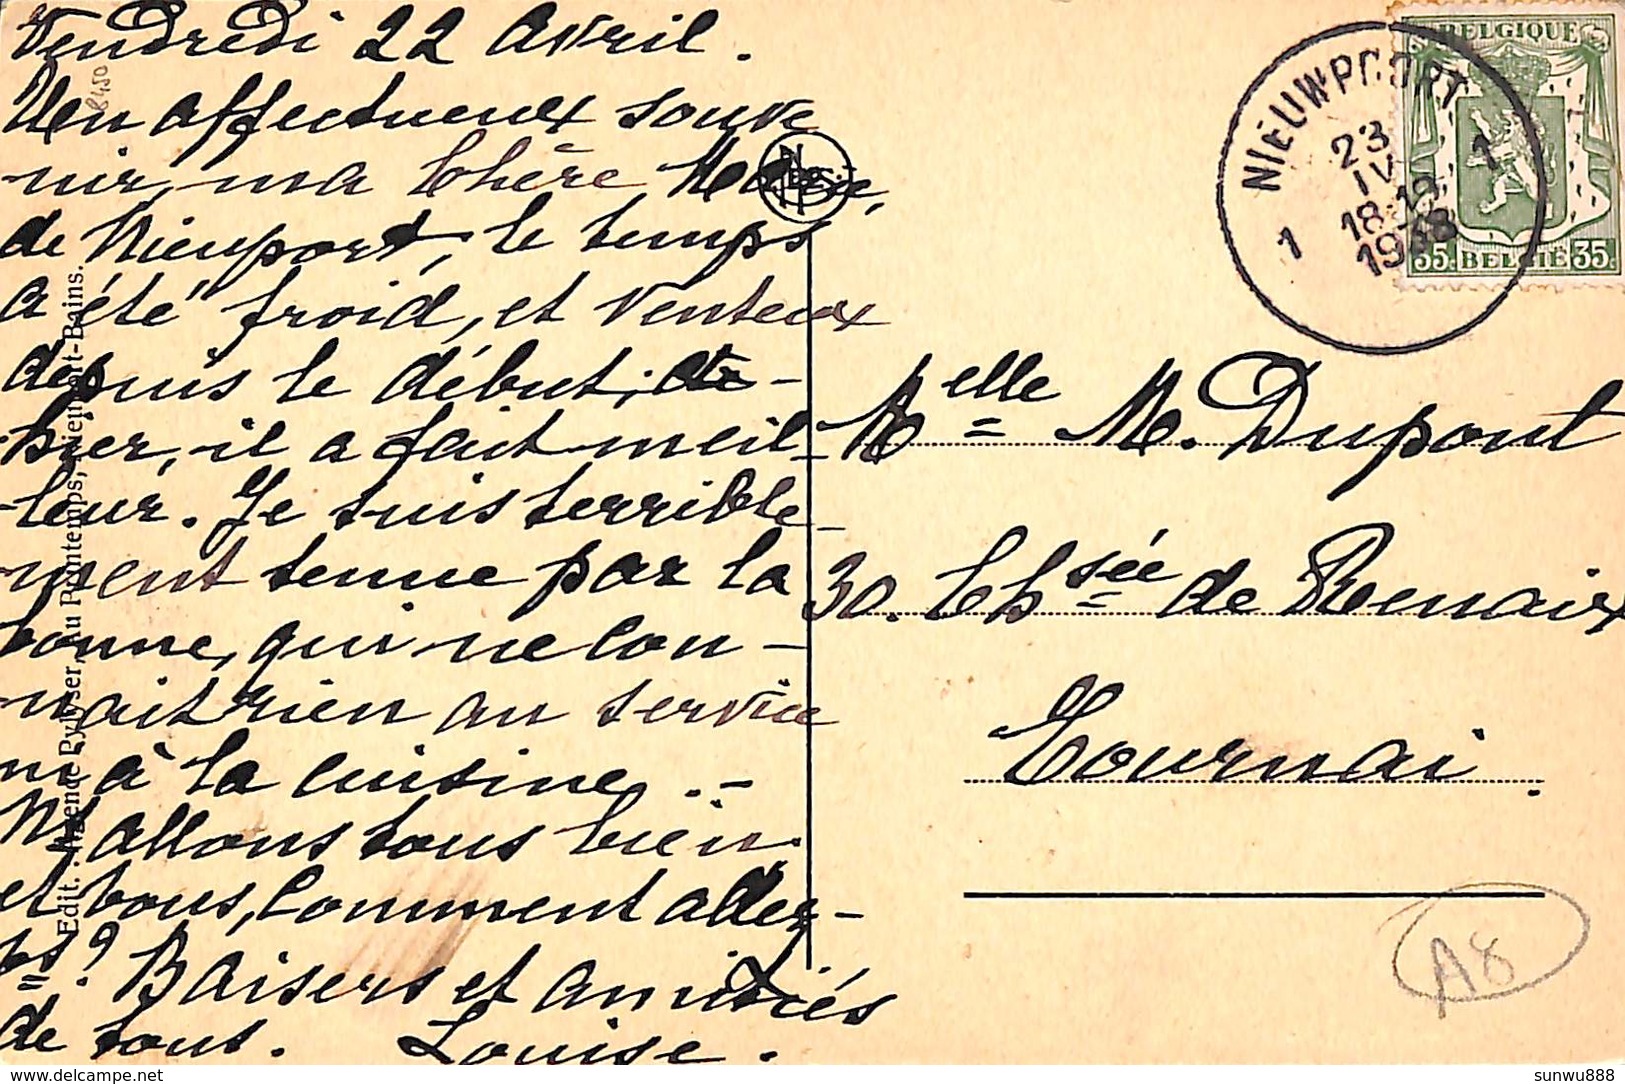 Vendredi 22 Avril.
Un affectueux souve
nir, ma Chère
de Nieuport, le temps
a été froid, et venteux
depuis le début,
hier, il a fait meil-
leur. Je suis terrible-
ment tenue par la
bonne, qui ne con-
nait rien au service
ni à la cuisine. -
Ns allons tous bien
et vous, comment allez-
vs? Baisers et amitiés
de tous. Louise.
8450
Edit. : Agence Pylyser, Au Printemps, Nieuport-Bains.
BELGIQUE
35c BELGIË 35c
NIEUWPOORT
1 1
23
IV
18-19
1938
Melle M. Dupont
30. Chsée de Renaix
Tournai.
A8
delcampe.net
sunwu888